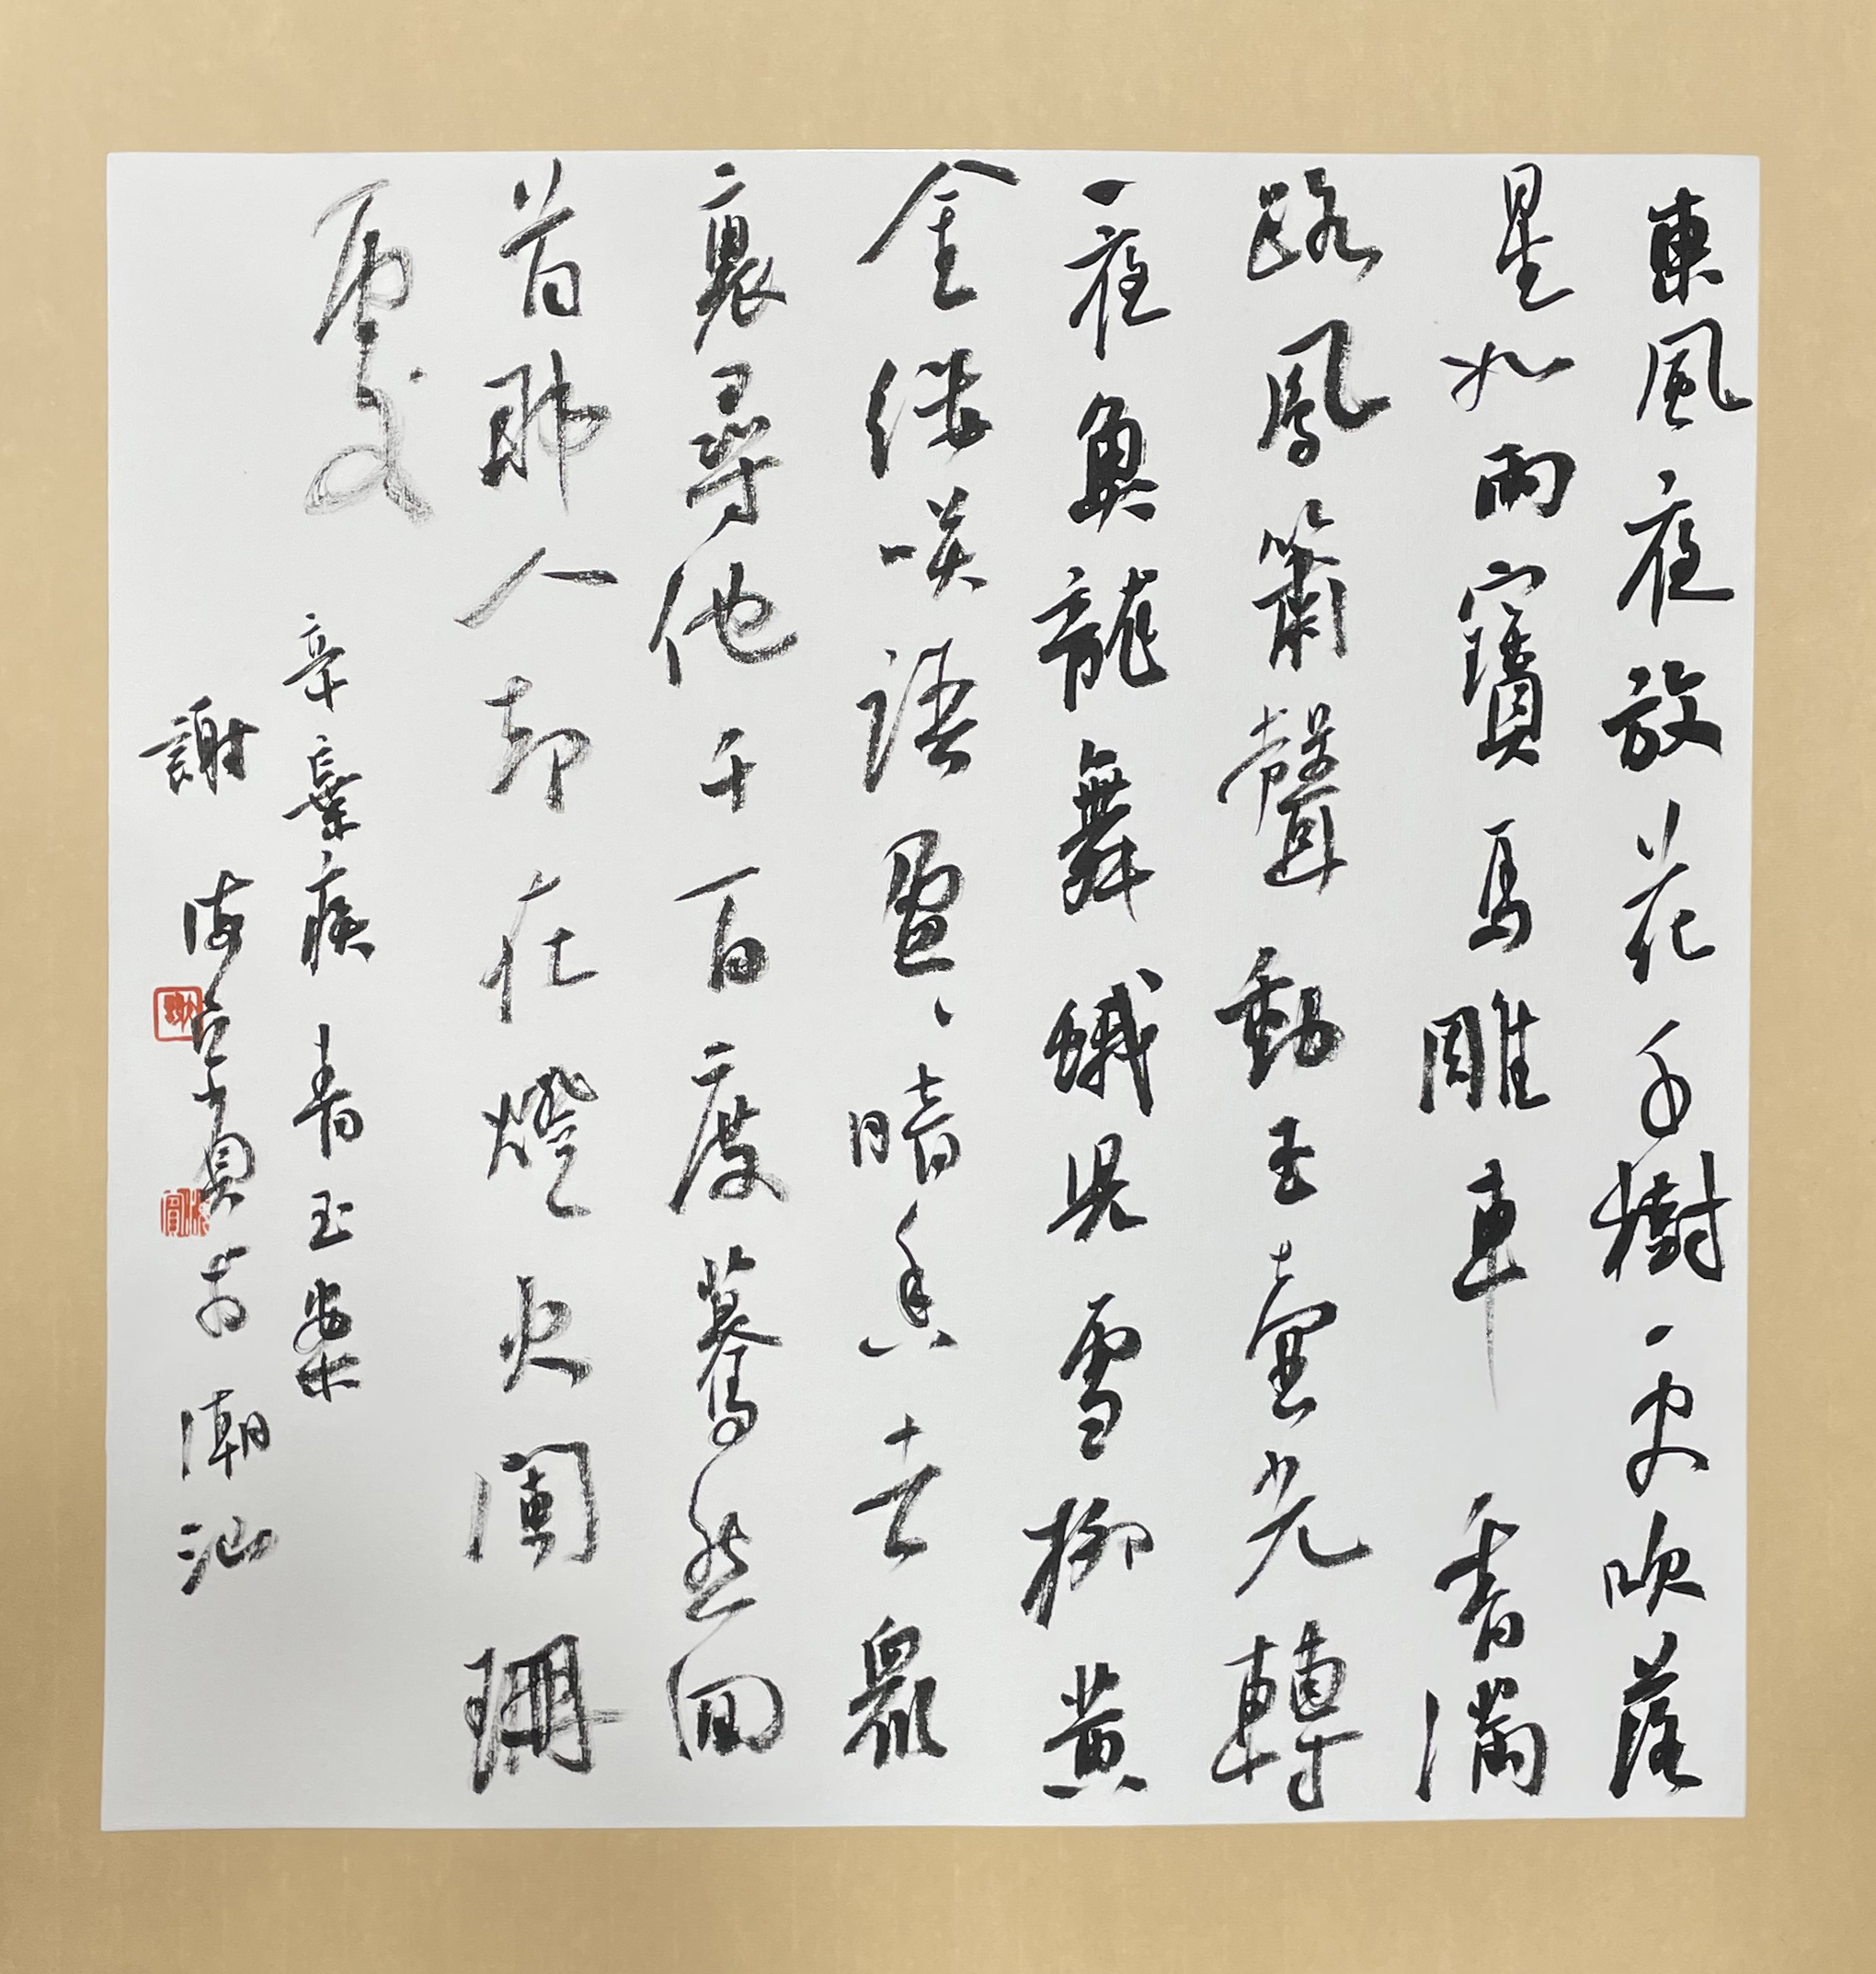 東風夜放花千樹更吹落
星如雨寶馬雕車香滿
路鳳簫聲動玉壺光轉
一夜魚龍舞蛾兒雪柳黃
金縷咲語盈、暗香去眾
裏尋他千百度驀然回
首那人却在燈火闌珊
處
辛棄疾 青玉案
謝海於潮汕